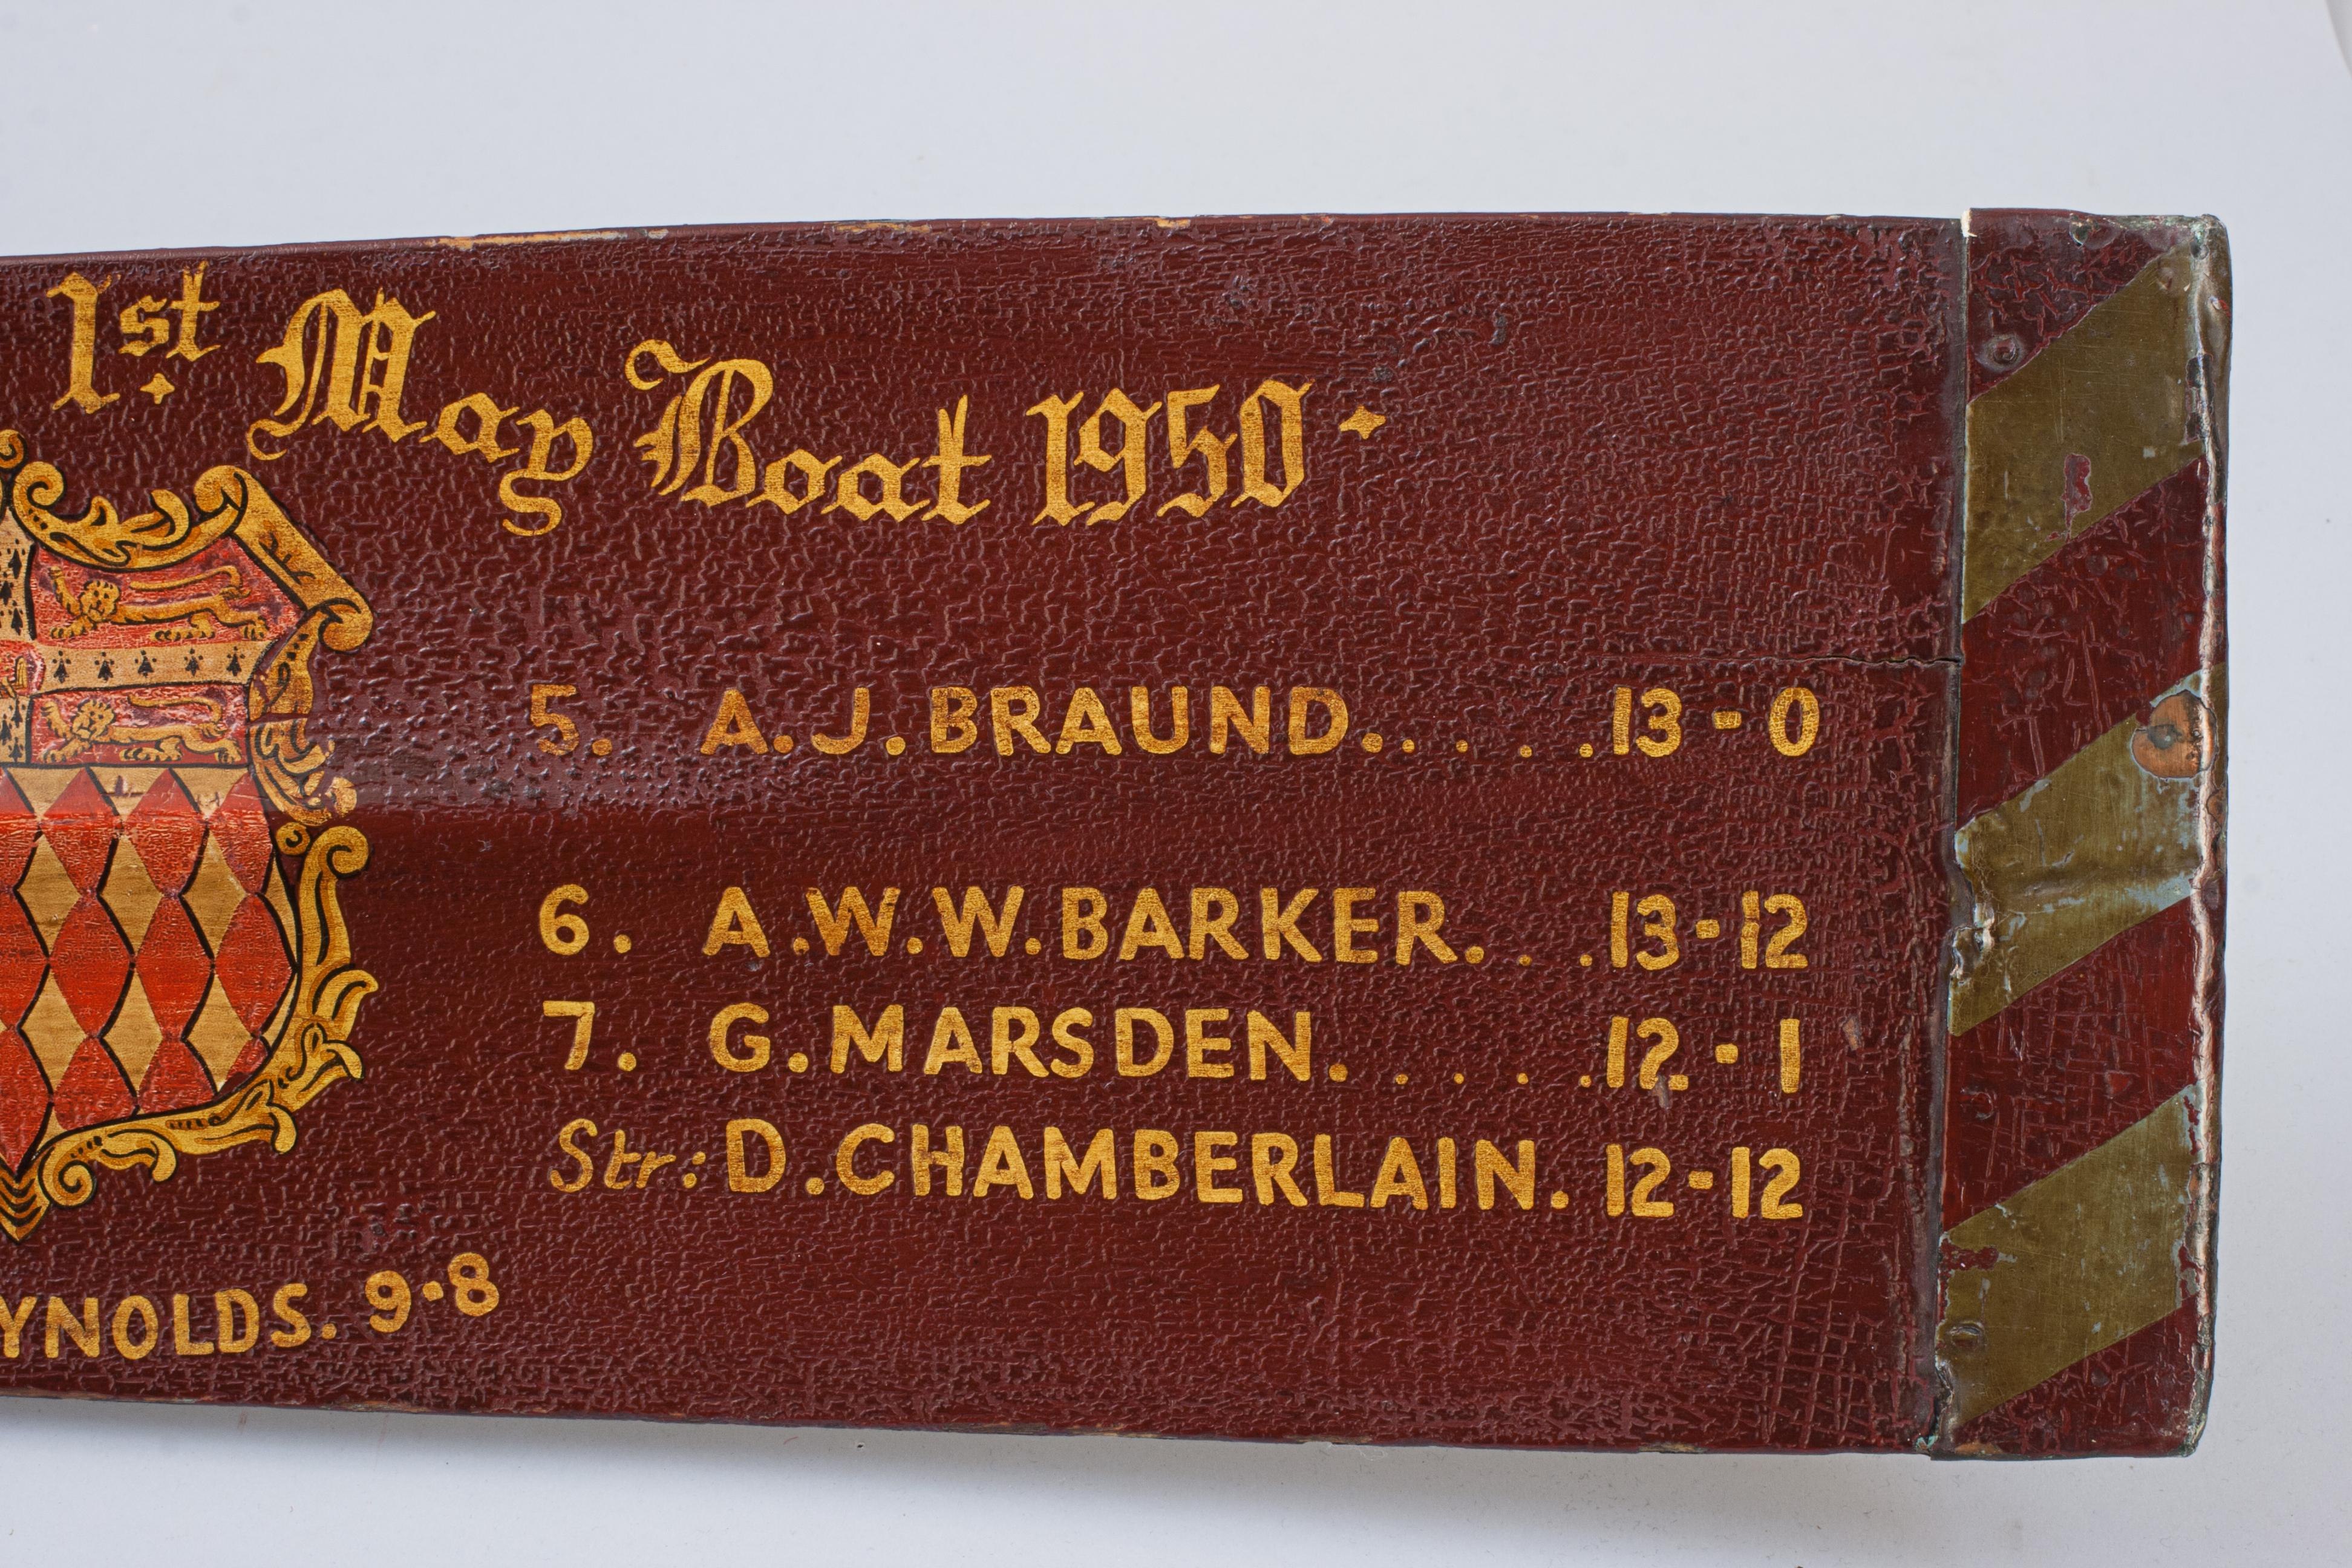 1st. May Boat 1950.
5. A.J.BRAUND..... 13-0
6. A.W.W.BARKER... 13-12
7. G.MARSDEN..... 12-1
Str: D.CHAMBERLAIN. 12-12
YNOLDS. 9-8